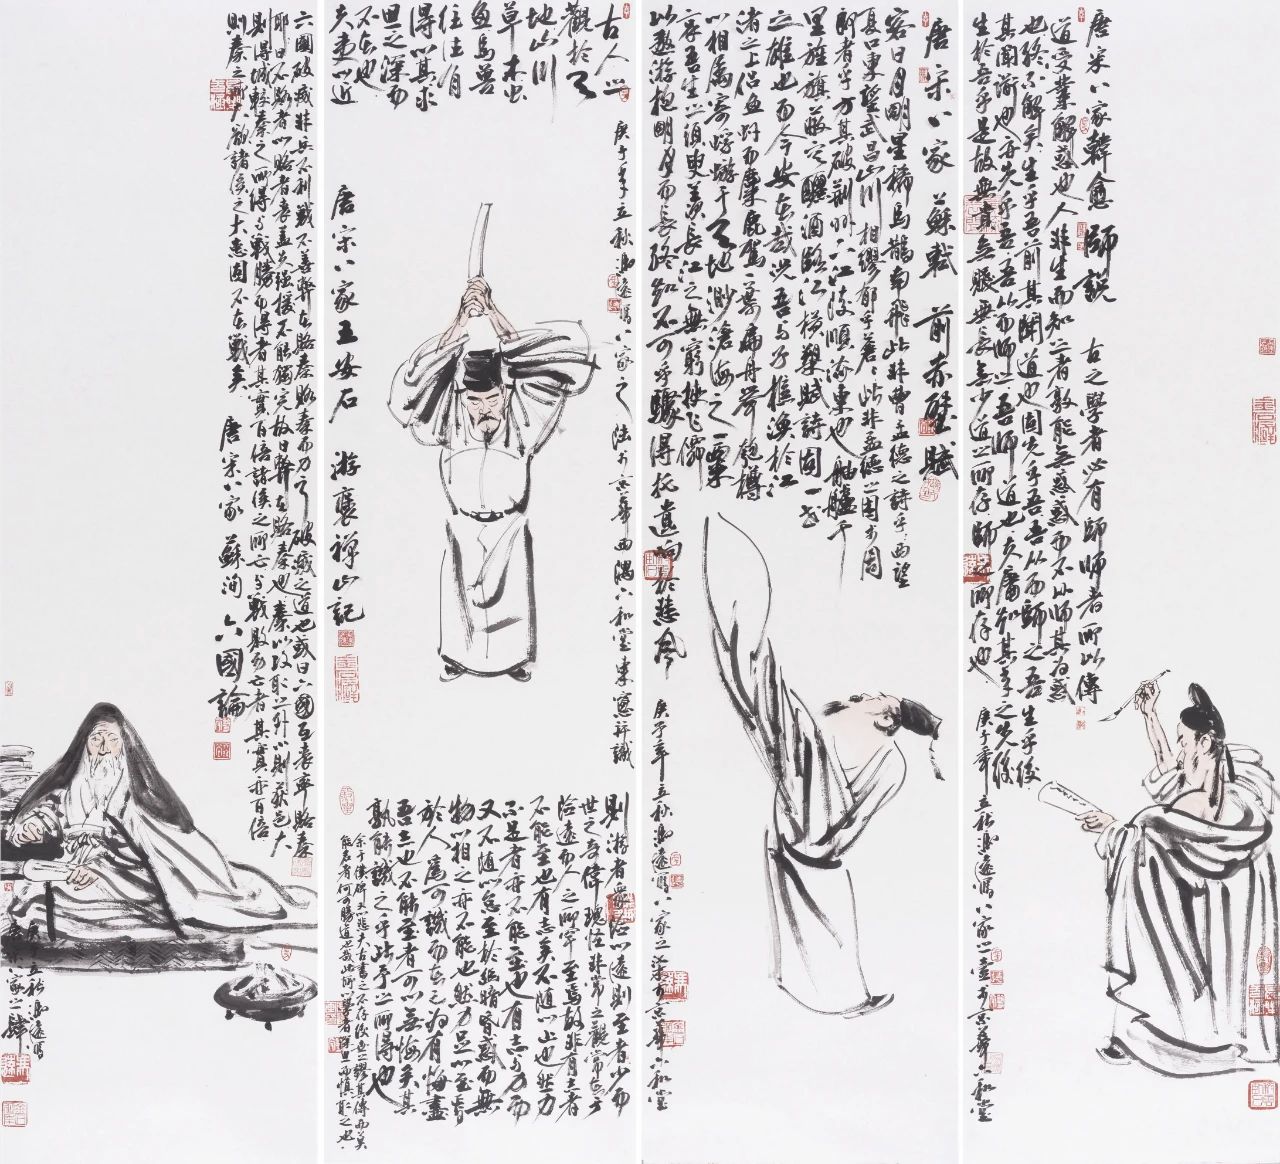 唐宋八家韓愈 師說 古之學者必有師師者所以傳
道受業解惑也人非生而知之者孰能無惑惑而不從師其為惑
也終不解矣生乎吾前其聞道也固先乎吾吾從而師之吾生乎後
其聞道也亦先乎吾吾從而師之吾師道也夫庸知其年之先後
生於吾乎是故無貴無賤無長無少道之所存師之所存也
庚子年立秋馮遠寫八家之壹於京華六和堂
唐宋八家 蘇軾 前赤壁賦
客曰月明星稀烏鵲南飛此非曹孟德之詩乎西望
夏口東望武昌山川相繆郁乎蒼蒼此非孟德之困於周
郎者乎方其破荊州下江陵順流東也舳艫千
里旌旗蔽空釃酒臨江橫槊賦詩固一世
之雄也而今安在哉況吾與子樵漁於江
渚之上侶魚蝦而麋鹿駕一葉扁舟舉匏樽
以相屬寄蜉蝣于天地渺滄海之一粟
哀吾生之須臾羨長江之無窮挾飛仙
以遨遊抱明月而長終知不可乎驟得托遺響於悲風
庚子年立秋馮遠寫八家之 於京華六和堂
古人之
觀於天
地山川
草木蟲
魚鳥獸
往往有
得以其求
思之深而
不在也
夫夷以近
則遊者眾險以遠則至者少而
世之奇偉瑰怪非常之觀常在于
險遠而人之所罕至焉故非有志者
不能至也有志矣不隨以止也然力
不足者亦不能至也有志與力而
又不隨以怠至於幽暗昏惑而無
物以相之亦不能也然力足以至焉
於人為可譏而在己為有悔盡
吾志也不能至者可以無悔矣其
孰能譏之乎此予之所得也
余于仆碑又以悲夫古書之不存後世之謬其傳而莫
能名者何可勝道也哉此所以學者 思而慎取之也
唐宋八家王安石 遊褒禪山記
庚子年立秋馮遠寫八家之 法於京華西隅六和堂 窗并識
六國破滅非兵不利戰不善弊在賂秦賂秦而力虧破滅之道也或曰六國互喪率賂秦
耶曰不賂者以賂者喪蓋失強援不能獨完故曰弊在賂秦也秦以攻取之外小則獲邑大
則得城較秦之所得與戰勝而得者其實百倍諸侯之所亡與戰敗而亡者其實亦百倍
則秦之所大欲諸侯之大患固不在戰矣 唐宋八家 蘇洵 六國論
庚子立秋馮遠寫
唐宋八家之肆